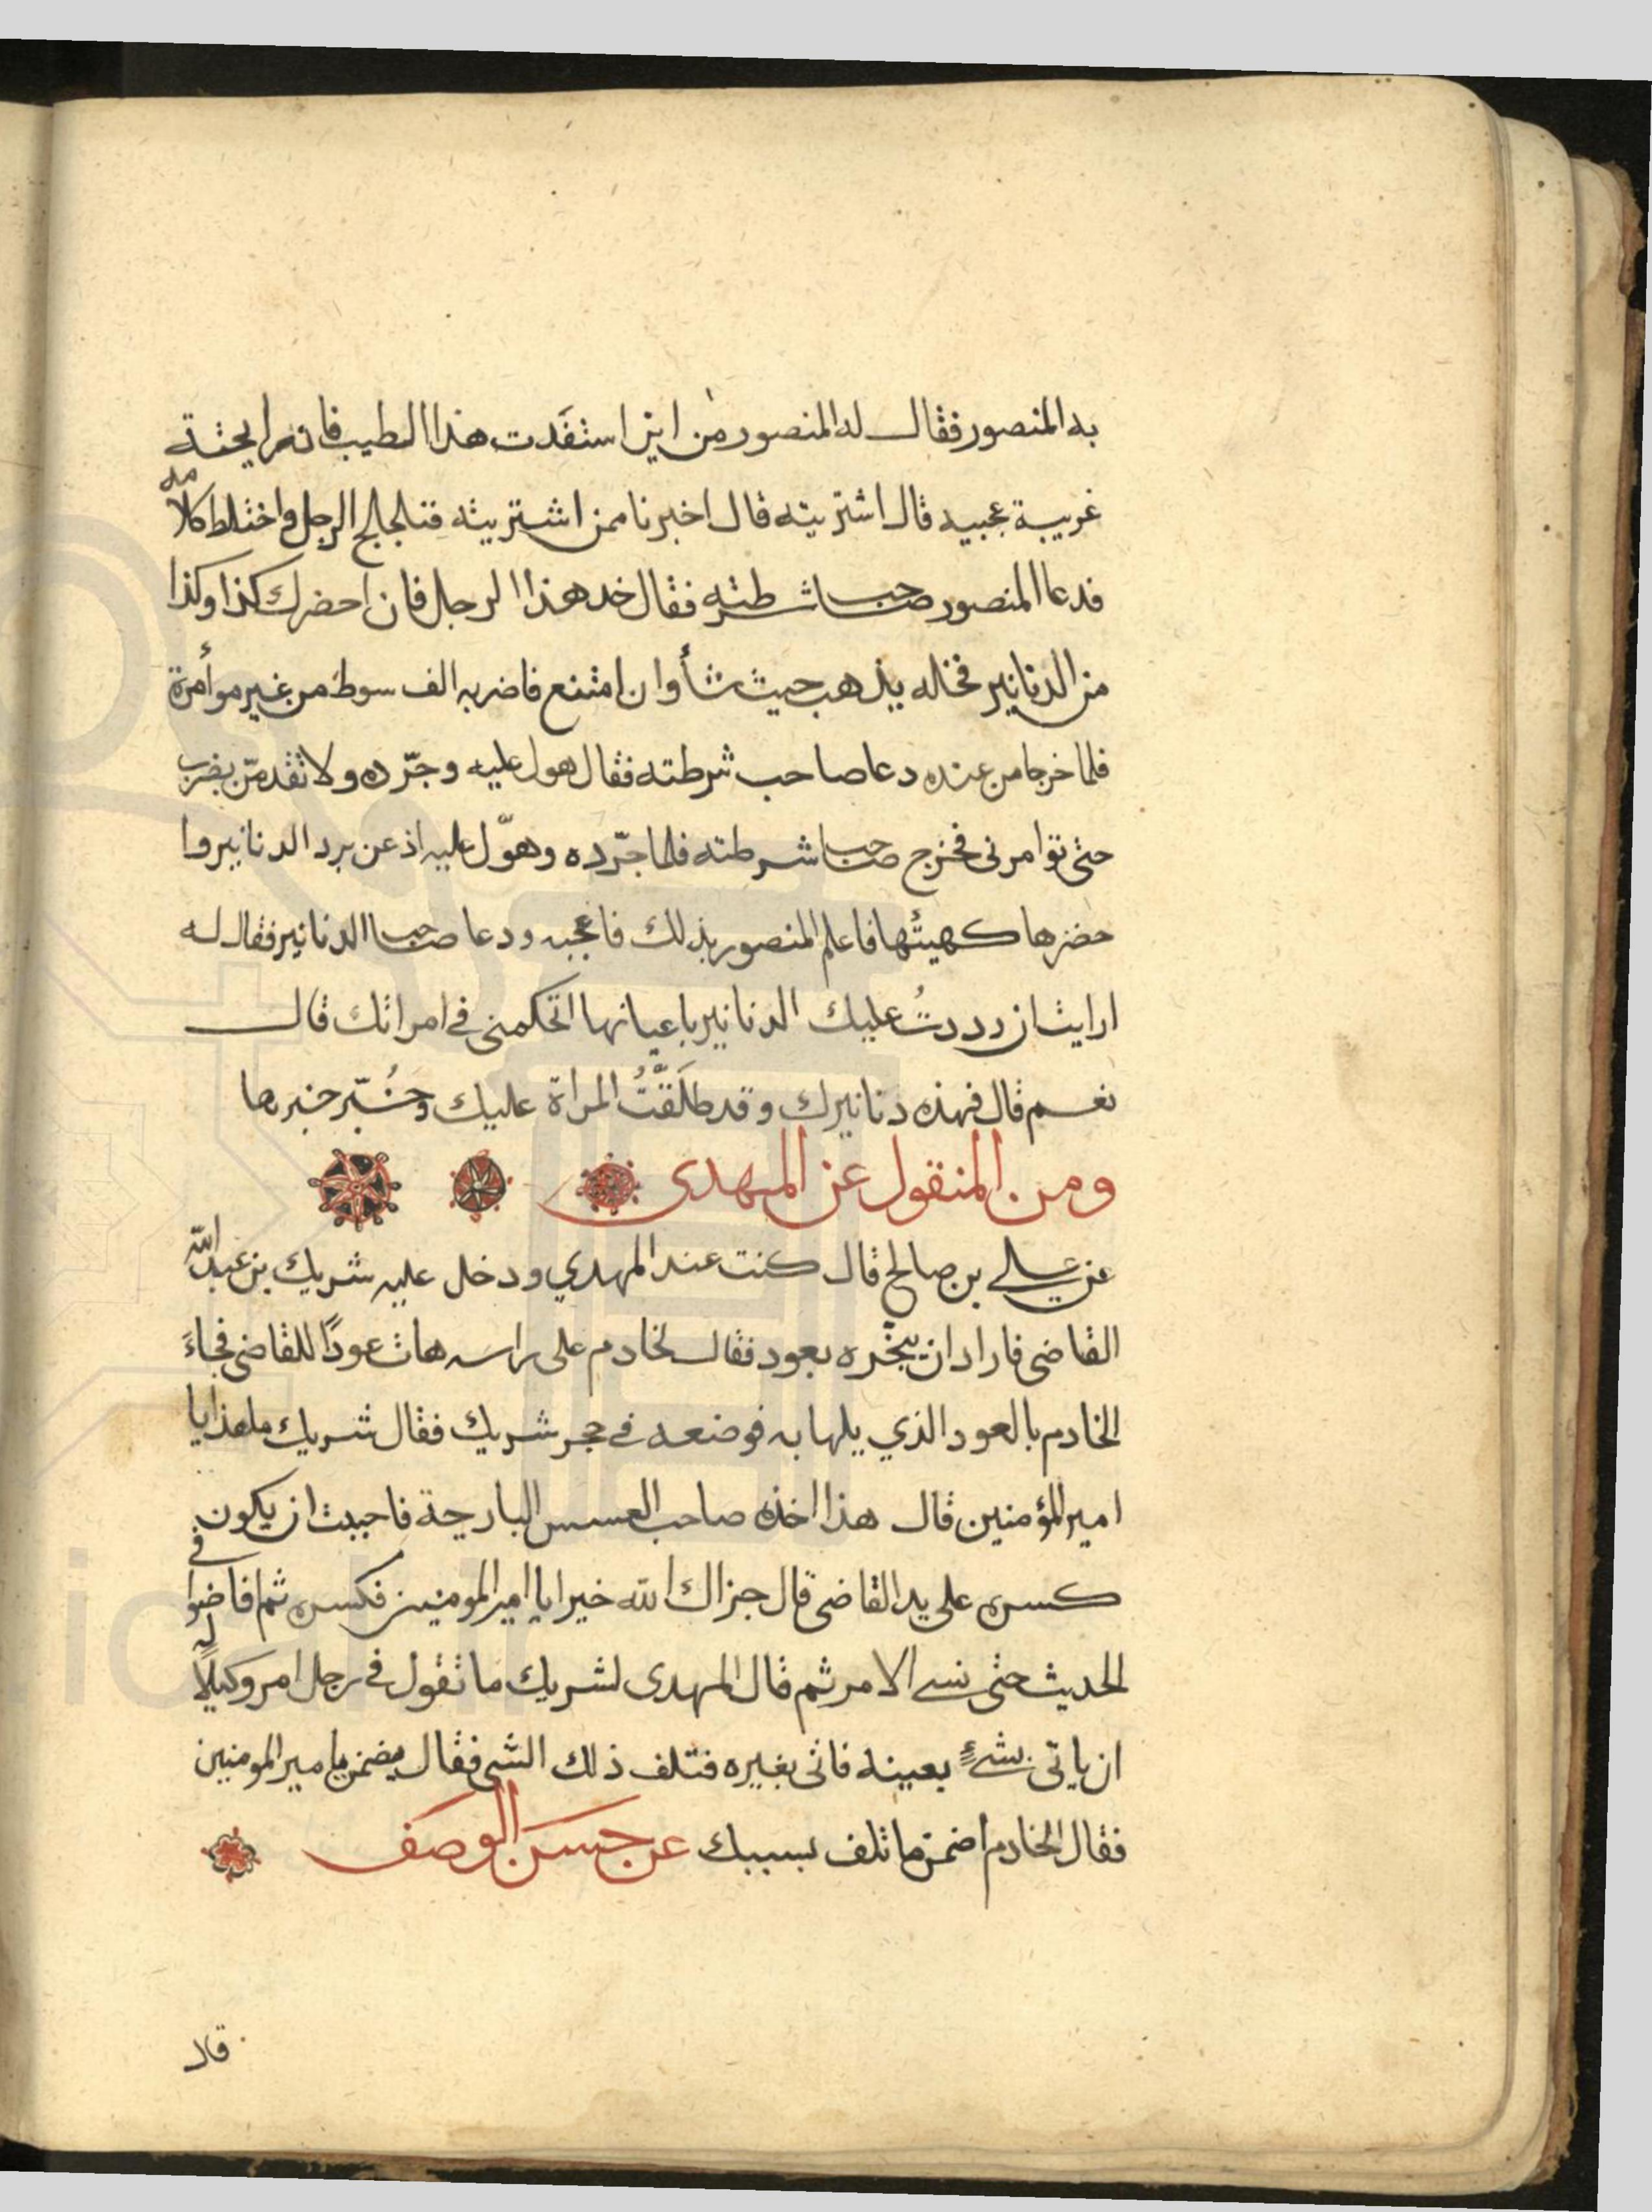 به المنصور فقال له المنصور من اين استفدت هذا الطيب فانه رايحته
غريبة عجيبه قال اشتريته قال اخبرنا ممن اشتريته فتلجلج الرجل واختلط كلامه
فدعا المنصور صاحب شرطته فقال خد هذا الرجل فان احضرك كذا وكذا
من الدنانير فخله يذهب حيث شأ وان امتنع فاضربه الف سوط من غير موأمرة
فلما خرجا من عنده دعا صاحب شرطته فقال هول عليه وجرّده ولا تقدمنّ بضرب
حتى توامرنى فخرج صاحب شرطته فلما جرّده وهوّل عليه اذعن برد الدنانير وا
حضرها كهيئتها فاعلم المنصور بذلك فاعجبه ودعا صاحب الدنانير فقال له
ارايت ان رددتُ عليك الدنانير باعيانها اتحكمنى في امراتك قال
نعم قال فهذه دنانيرك وقد طلَقّتُ المراة عليك وخُبّر خبرها
ومن المنقول عن المهدى
عن على بن صالح قال كنت عند المهدي ودخل عليه شريك بن عبد الله
القاضى فاراد ان يبخّره بعود فقال لخادم على راسه هات عودًا للقاضى فجاءَ
الخادم بالعود الذي يلها به فوضعه في حجر شريك فقال شريك ما هذا يا
امير المؤمنين قال هذا اخذه صاحب العسس البارحة فاحببت ان يكون
كسره على يد القاضى قال جزاك الله خيرا يا امير المومنين فكسره ثم افاضوا في
الحديث حتى نسي الامر ثم قال المهدى لشريك ما تقول في رجل امر وكيلًا له
ان ياتى بشيءٍ بعينه فاتى بغيره فتلف ذلك الشي فقال يضمن يا مير المومنين
فقال للخادم اضمن ما تلف بسببك عن حسن الوصف
قال